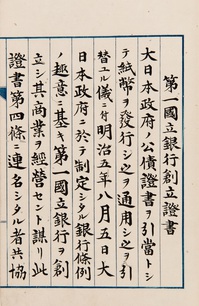 第一國立銀行創立證書
大日本政府ノ公債證書ヲ引當トシ
テ紙幣ヲ發行シ之ヲ通用シ之ヲ引
替エル儀ニ付明治五年八月五日大
日本政府ニ於テ制定シタル銀行條例
ノ趣意ニ基キ第一國立銀行ヲ創
立シ其商業ヲ經營セント謀リ此
證書第四條ニ連名シタル者共協